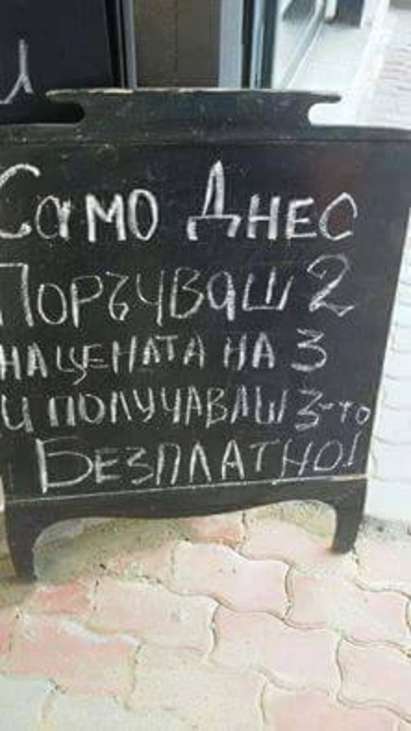 Само Днес
Поръчваш 2
на цената на 3
и получаваш 3-то
Безплатно!